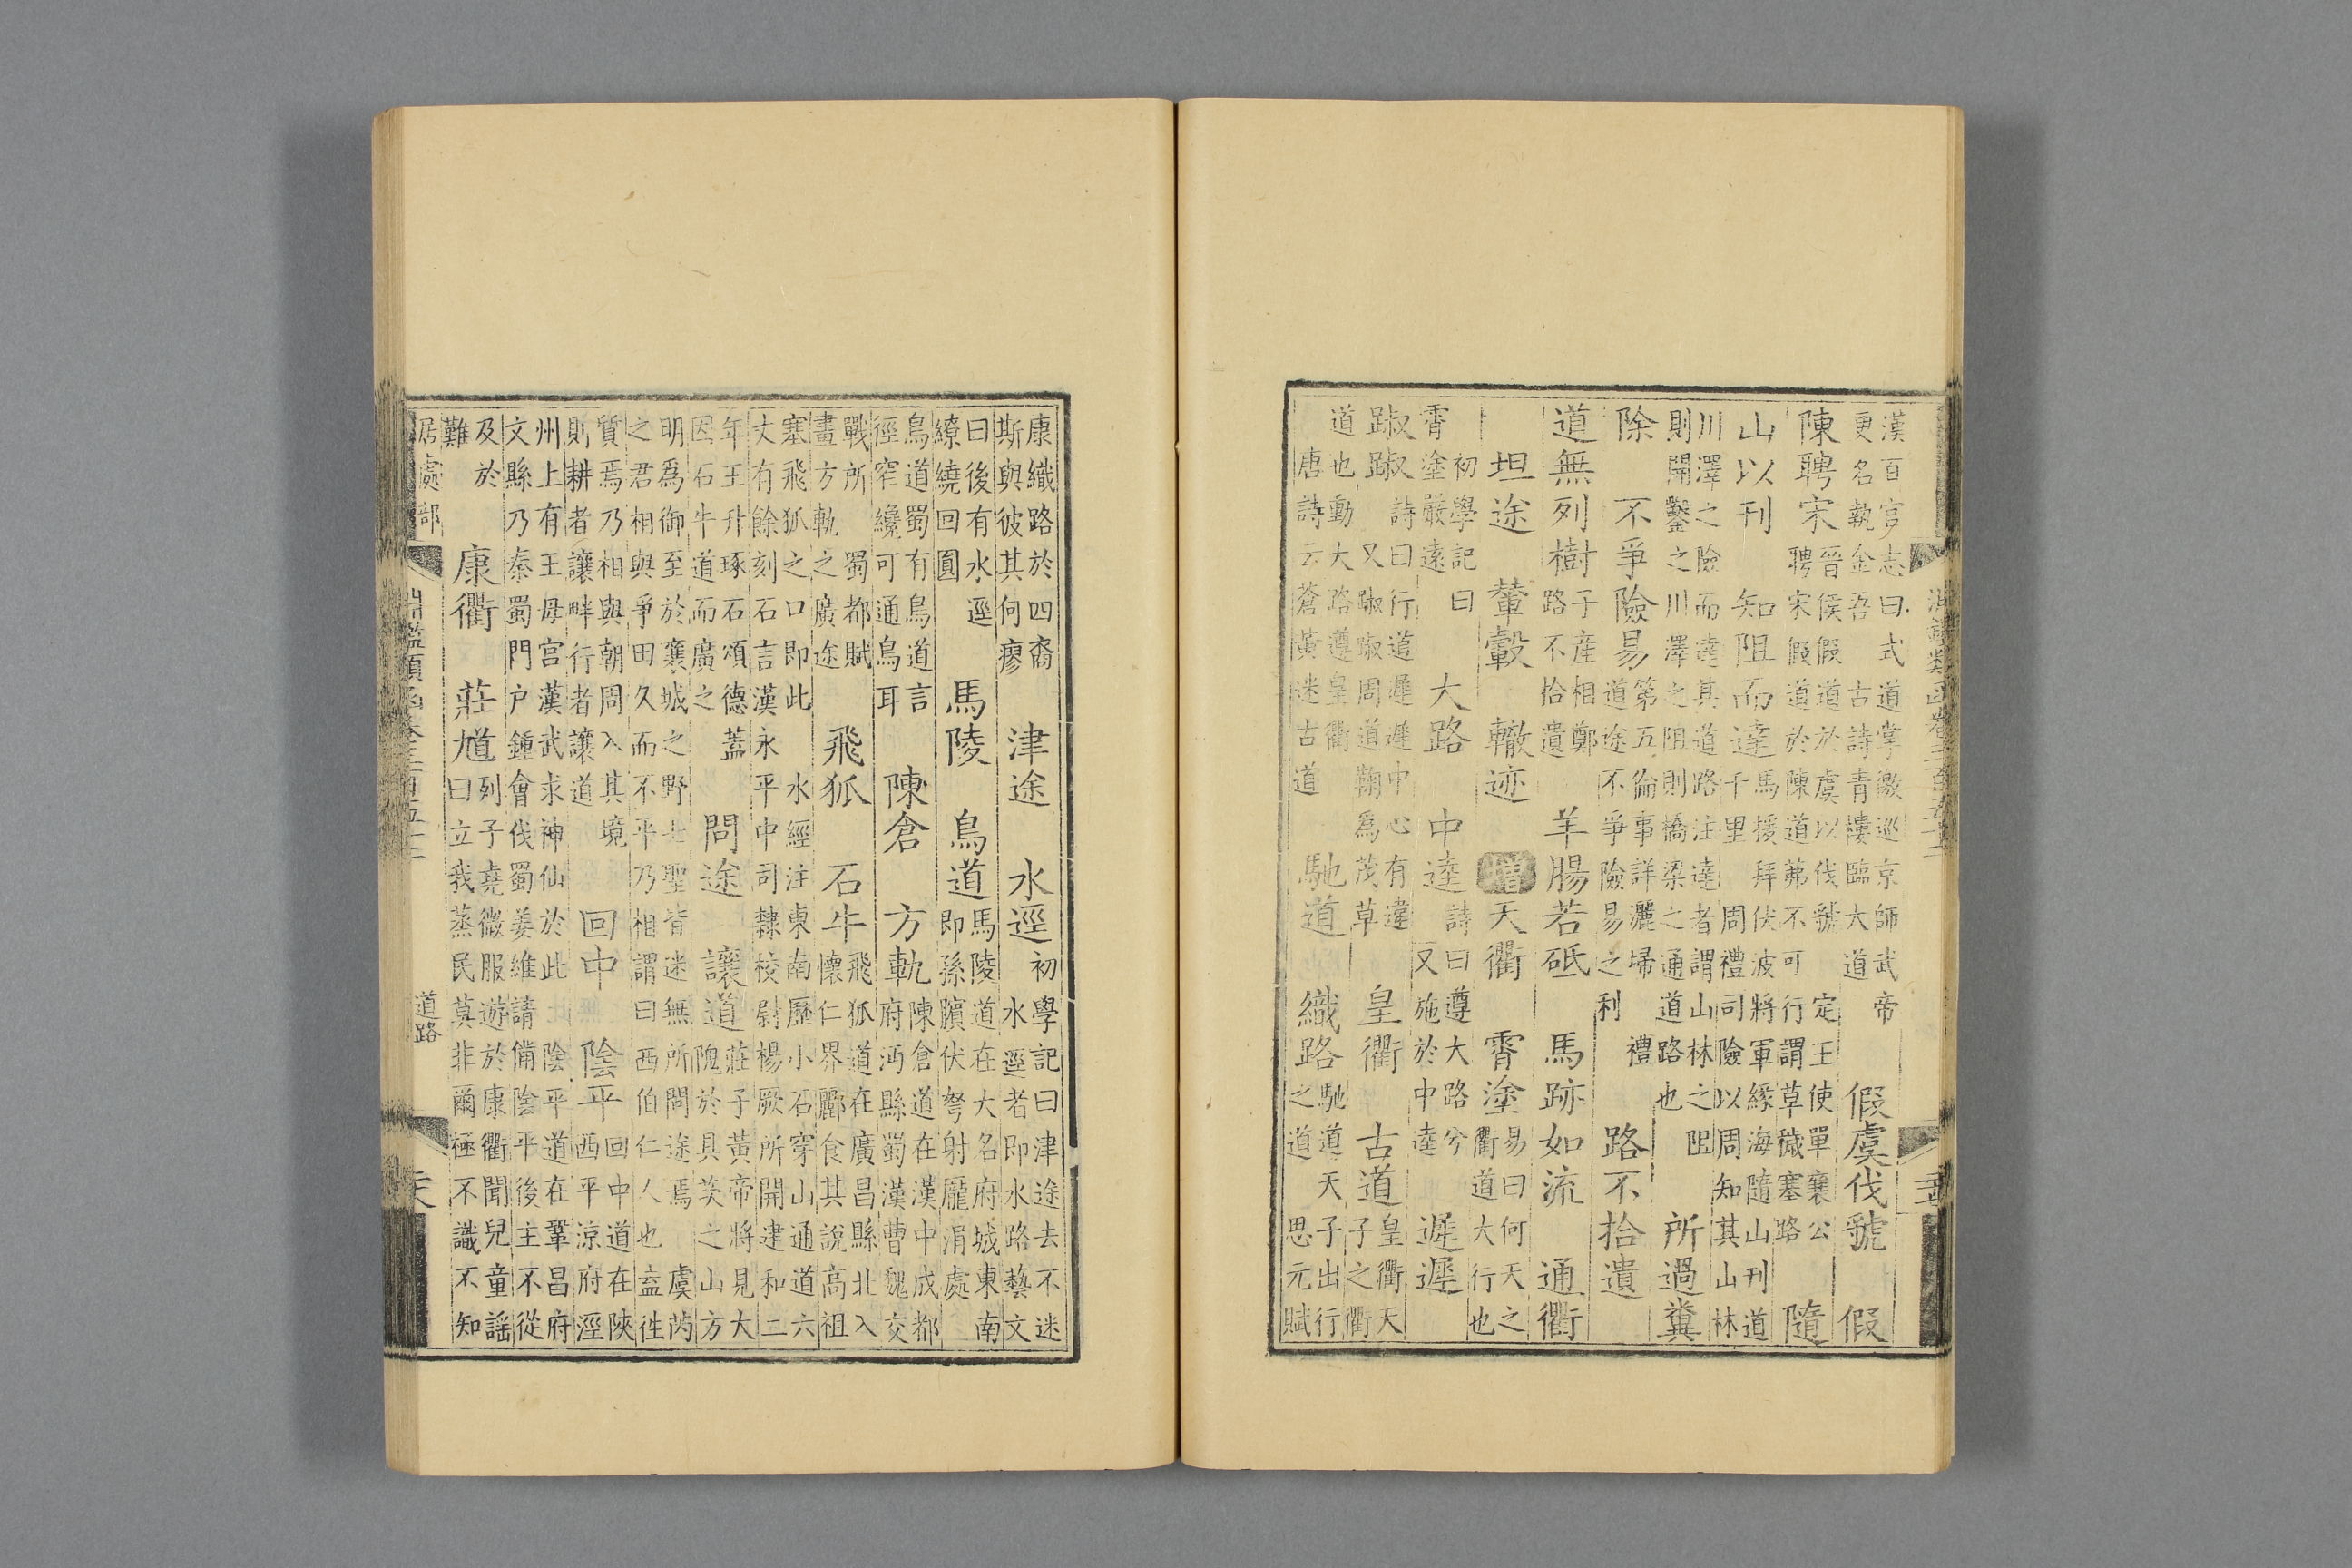 漢百官志曰武道掌徼巡京師武帝更名執金吾 古詩青樓臨大道 假虞伐虢 假
陳聘宋 晉侯假道於虞以伐虢 定王使單襄公聘宋假道於陳道茀不可行謂草穢塞路 隨
山以刊 知阻而達 馬援拜伏波將軍緣海隨山刊道千里 周禮司險以周知其山林
川澤之險而達其道路注達者謂山林之阻則開鑿之川澤之阻則橋梁之通道路也 所過糞
除 不爭險易 第五倫事詳灑埽 禮道途不爭險易之利 路不拾遺
道無列樹 子產相鄭路不拾遺 羊腸若砥 馬跡如流 通衢
坦途 輦轂 轍迹 增 天衢 霄塗 易曰何天之衢道大行也
初學記曰霄塗嚴遠 大路 中逵 詩曰遵大路兮 又施於中逵 遲遲
踧踧 詩曰行道遲遲中心有違 又踧踧周道鞫為茂草 皇衢 古道 皇衢天子之衢
道也動大路遵皇衢 唐詩云蒼黃迷古道 馳道 織路 馳道天子出行之道 思元賦
康織路於四裔斯與彼其何瘳 津途 水逕 初學記曰津途去不迷 水逕者即水路藝文
曰後有水逕繚繞回圓 馬陵 鳥道 馬陵道在大名府城東南即孫臏伏弩射龐涓處
鳥道蜀有鳥道言徑窄纔可通鳥耳 陳倉 方軌 陳倉道在漢中成都府沔縣蜀漢曹魏交
戰所 蜀都賦畫方軌之廣途 飛狐 石牛 飛狐道在廣昌縣北入懷仁界酈食其說高祖
塞飛狐之口即此 水經注東南歷小石穿山通道六丈有餘刻石言漢永平中司隸校尉楊厥所開建和二
年王升琢石頌德蓋因石牛道而廣之 問途 讓道 莊子黃帝將見大隗於具茨之山方
明為御至於襄城之野七聖皆迷無所問途焉 虞芮之君相與爭田久而不平乃相謂曰西伯仁人也盍往
質焉乃相與朝周入其境則耕者讓畔行者讓道 回中 陰平 回中道在陝西平涼府涇
州上有王母宮漢武求神仙於此 陰平道在鞏昌府文縣乃秦蜀門戶鍾會伐蜀姜維請備陰平後主不從
及於難 康衢 莊馗 列子堯微服遊於康衢聞兒童謠曰立我蒸民莫非爾極不識不知
居處部 道路